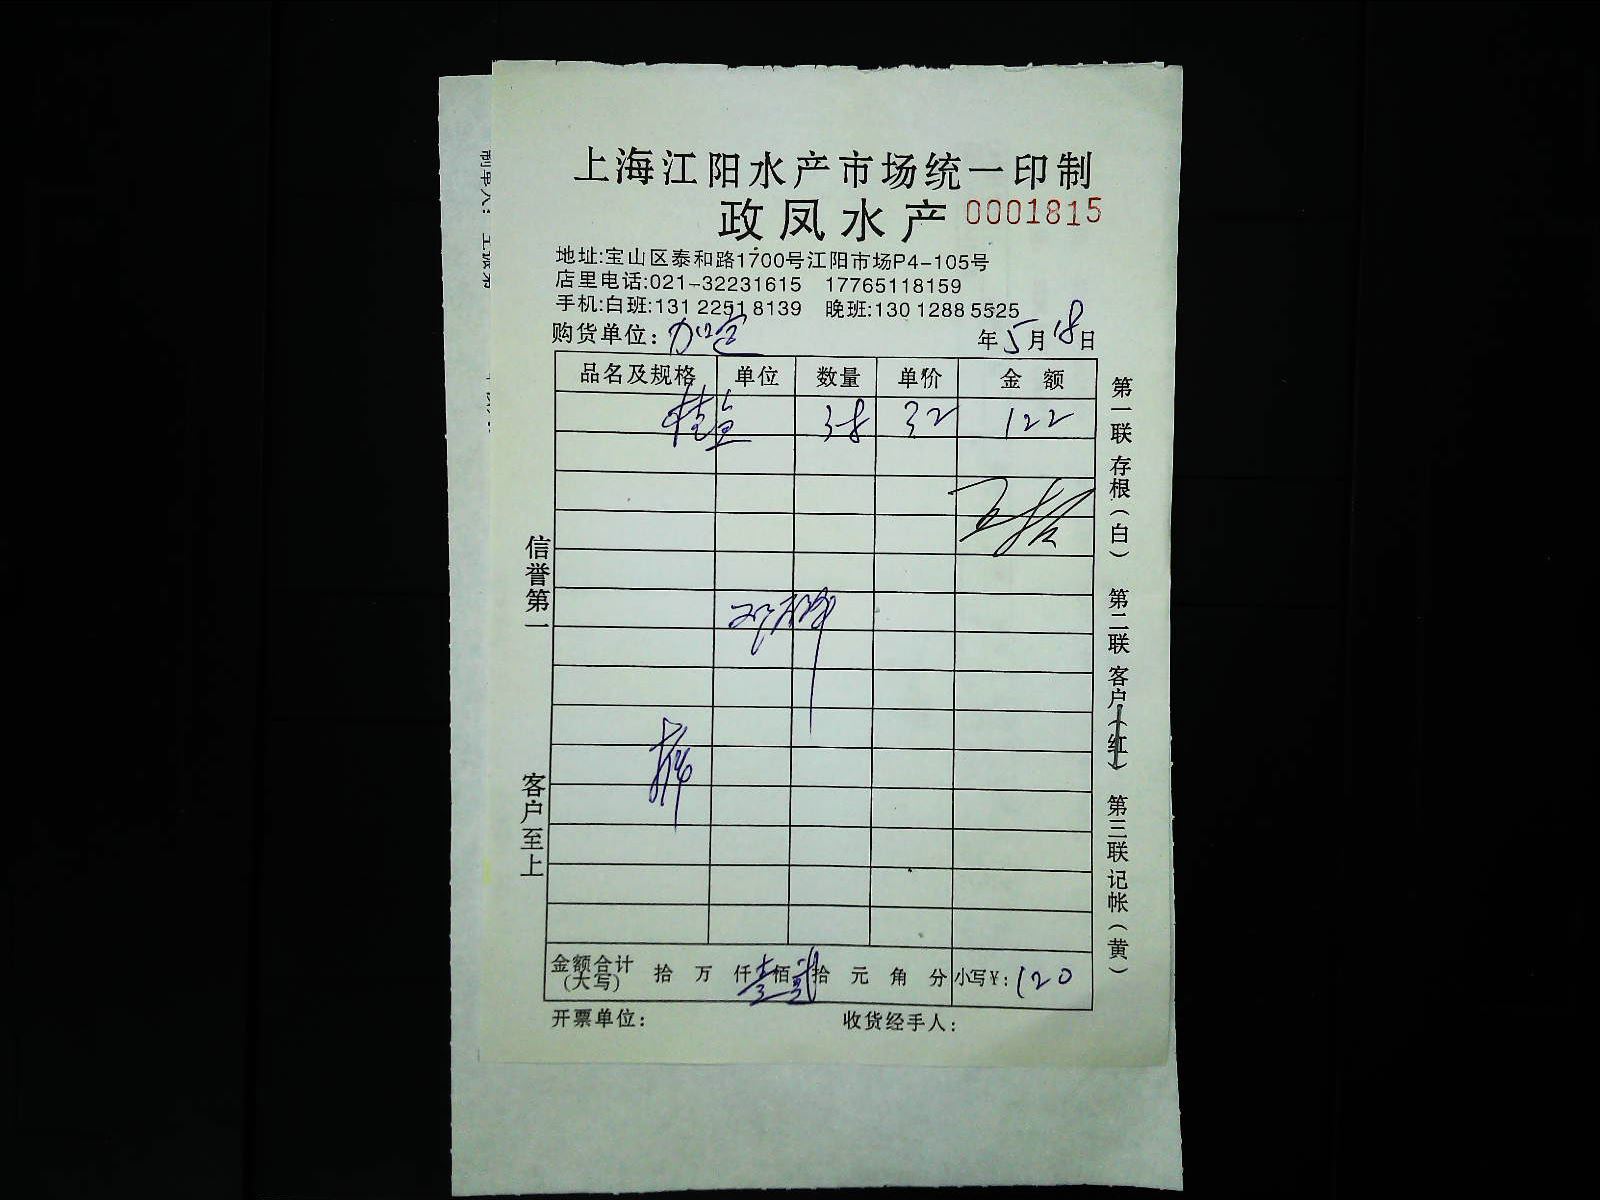 上海江阳水产市场统一印制
政凤水产 0001815
地址:宝山区泰和路1700号江阳市场P4-105号
店里电话:021-32231615 17765118159
手机:白班:131 2251 8139 晚班:130 1288 5525
购货单位: 加定 年5月18日
品名及规格 单位 数量 单价 金额
桂鱼 3.8 32 122
金额合计(大写) 拾 万 仟壹佰贰拾 元 角 分 小写¥:120
开票单位: 收货经手人:
信誉第一
客户至上
第一联 存根(白) 第二联 客户(红) 第三联 记帐(黄)
制单人: